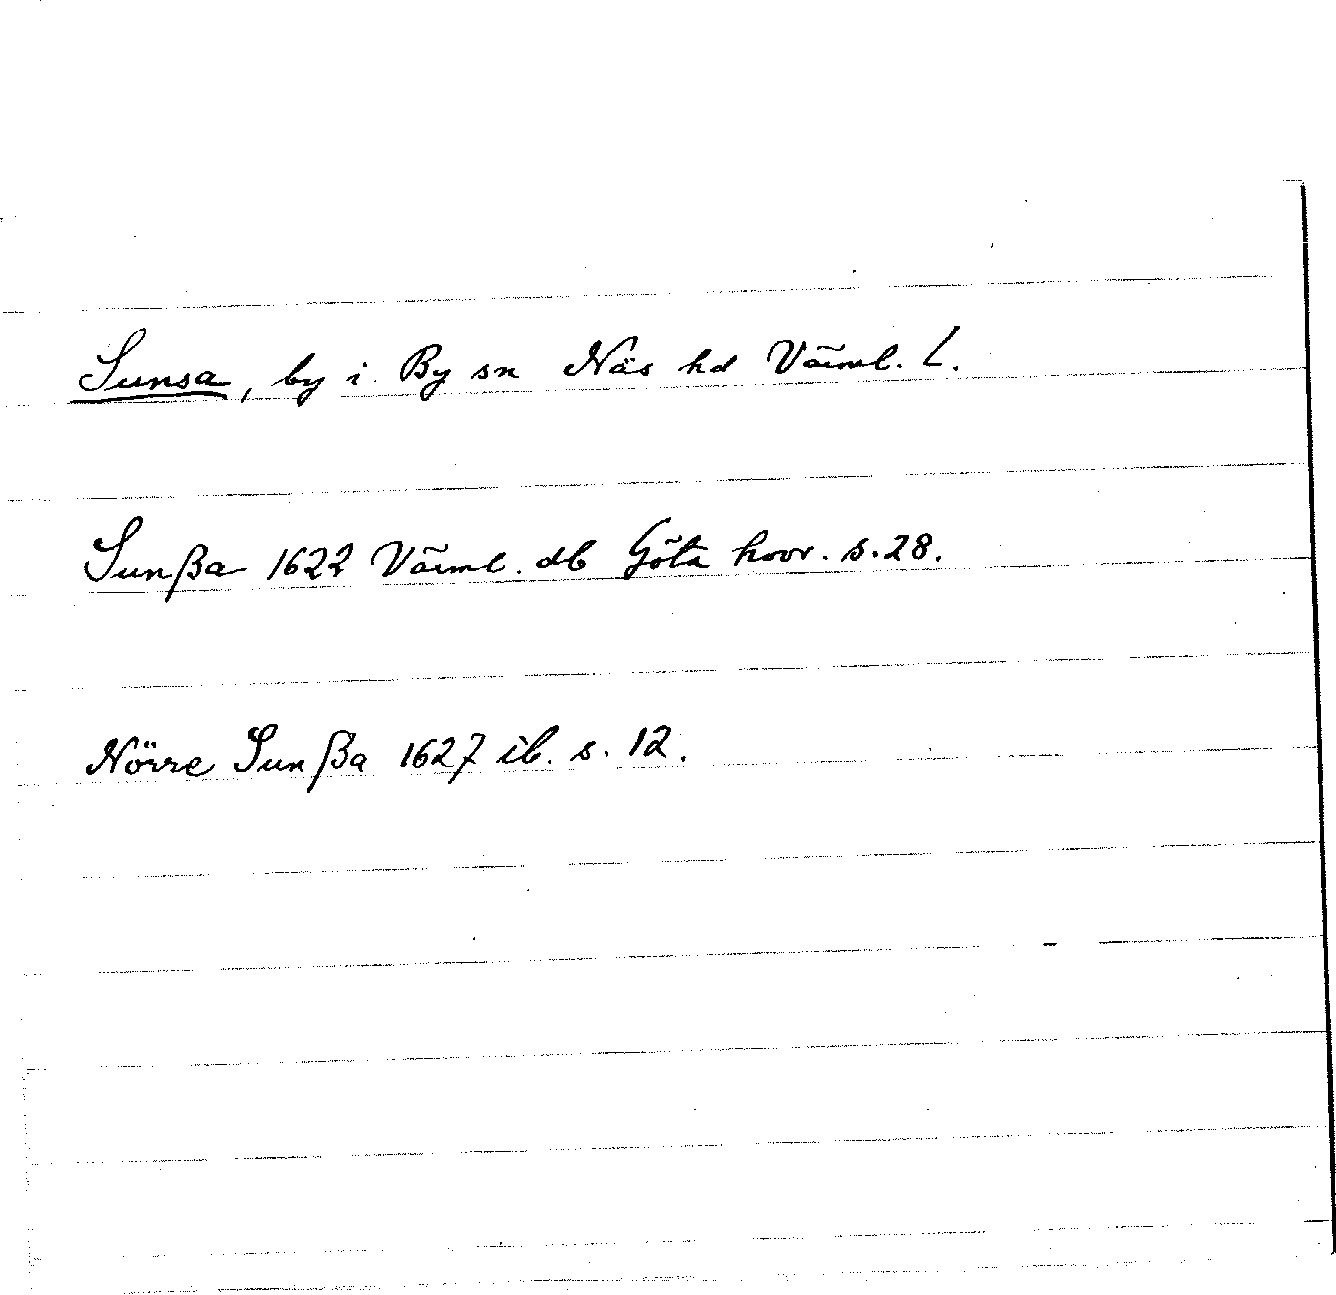 Sunsa, by i By sn Näs hd Värml. L.
Sunßa 1622 Värml. db Göta hovr. s. 28.
Nörre Sunßa 1627 ib. s. 12.